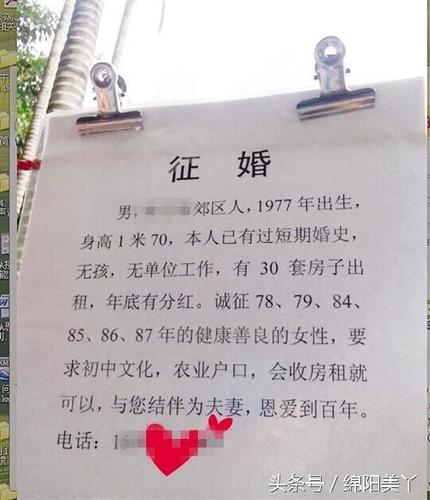 征 婚
男，郊区人，1977 年出生，
身高 1 米 70，本人已有过短期婚史，
无孩，无单位工作，有 30 套房子出
租，年底有分红。诚征 78、79、84、
85、86、87 年的健康善良的女性，要
求初中文化，农业户口，会收房租就
可以，与您结伴为夫妻，恩爱到百年。
电话：1
头条号 / 绵阳美丫